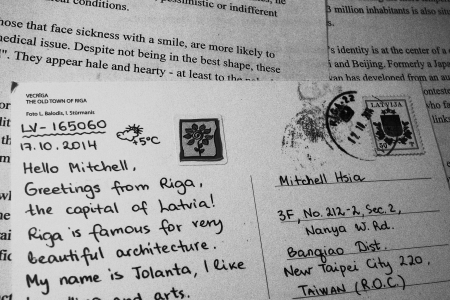 essimistic or indifferent
conditions.
hose that face sickness with a smile, are more likely to
medical issue. Despite not being in the best shape, these
". They appear hale and hearty - at least to the
3 million inhabitants is also
's identity is at the center of a
and Beijing. Formerly a
has developed from an
VECRĪGA
THE OLD TOWN OF RIGA
Foto L. Balodis, I. Stūrmanis
LV-165060
17.10.2014
+5°C
Hello Mitchell,
Greetings from Riga,
the capital of Latvia!
Riga is famous for very
beautiful architecture.
My name is Jolanta, I like
and arts.
LATVIJA
Mitchell Hsia
3F, No. 212-2, Sec. 2,
Nanya W. Rd.
Banqiao Dist.
New Taipei City 220,
TAIWAN (R.O.C.)